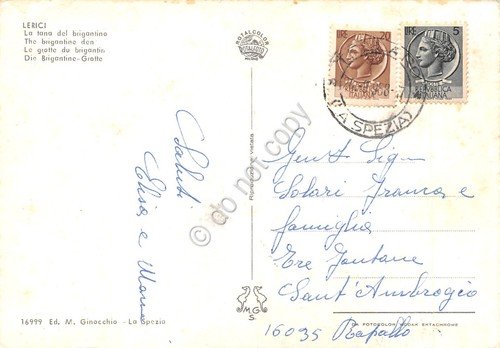 LERICI
La tana del brigantino
The brigantine den
La grotte du brigantin
Die Brigantine-Grotte
ROTALCOLOR
LIRE 20
LIRE 5
(LA SPEZIA)
Saluti
Elisa e Mamma
Riproduzione vietata
do not copy
Gent. Sig.
Solari Franca e
famiglia
Tre Fontane
Sant'Ambrogio
16035 Rapallo
MG
S
16999 Ed. M. Ginocchio - La Spezia
DA FOTOCOLOR KODAK EKTACHROME